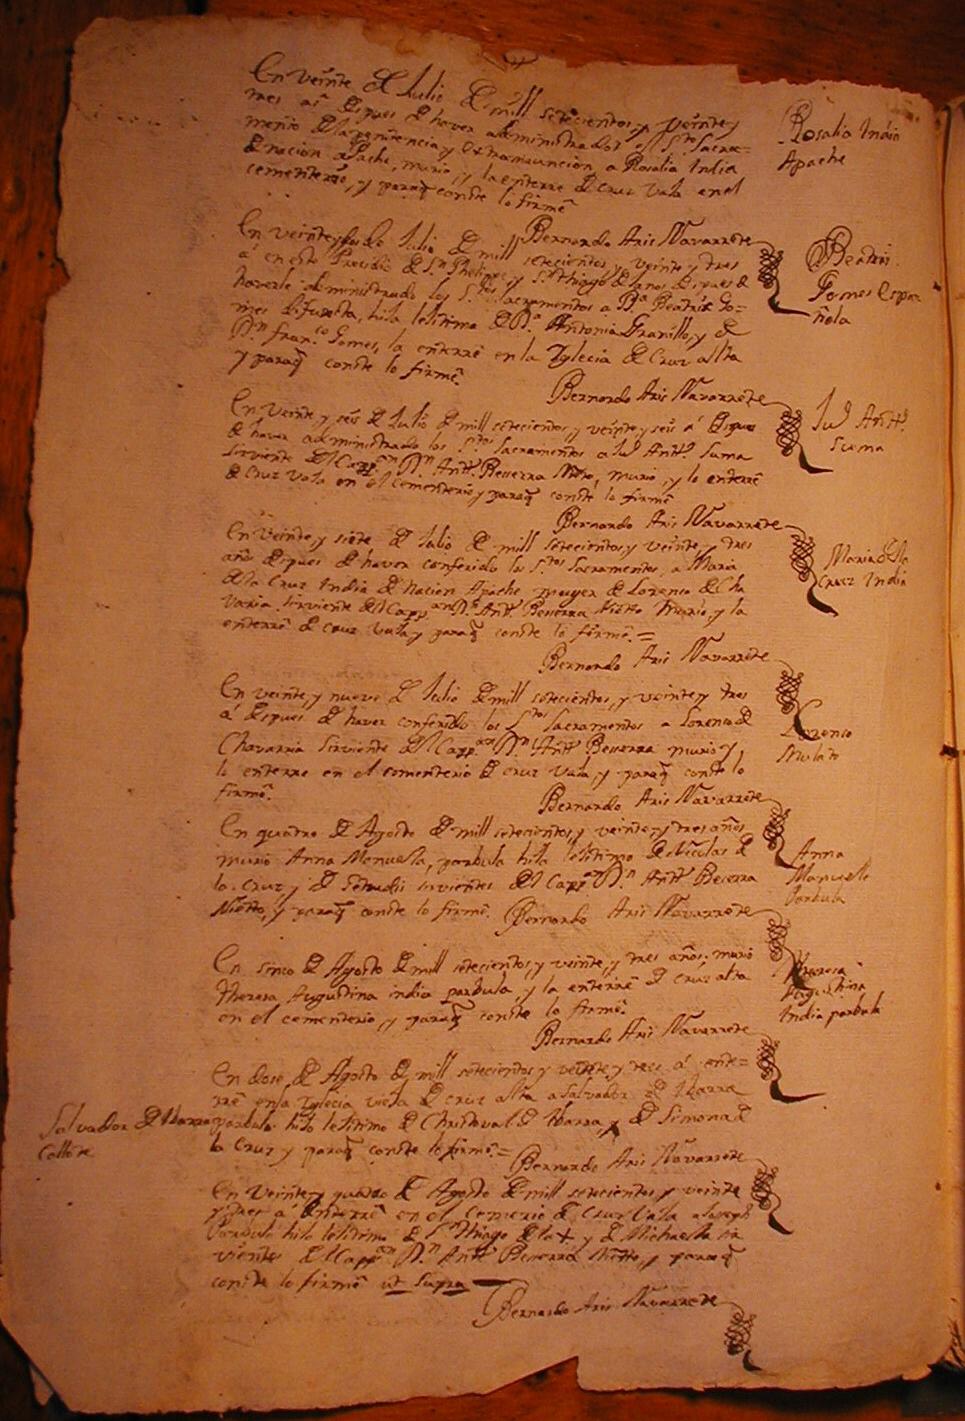 En veinte de Julio de mill setecientos, y veinte y
tres as. despues de haver administrados el Sto. Sacra=
mento de la penitencia y Extremauncion, a Rosalia India
de nacion Apache, murio, y la enterre de cruz vaxa en el
cementerio, y para q conste lo firmé
Rosalia India
Apache
Bernardo Aris Navarrete
En veinte y de Julio de mill setecientos, y veinte y tres
á en este Presidio de Sn. Phelippe, y St.Thiago de años despues de
haverle administrado los Stos. sacramentos a Da. Beatris Go=
mes difunta, hija lexitima de Da. Antonia Granillo, y de
Dn. Franco. Gomes, la enterré en la Yglecia de Cruz alta
y para q conste lo firmé
Beatris
Gomes Espa
ñola
Bernardo Aris Navarrete
En veinte y seis de Julio de mill setecientos, y veinte y seis á despues
de haver administrado los Stos. Sacramentos a Ju. Antt. Suma
sirviente del Cappan. Dn. Antt. Beserra Nieto, murio, y lo enterré
de Cruz vaxa en el cementerio, y para q conste lo firmé
Ju. Antt.
Suma
Bernardo Aris Navarrete
En veinte, y siete de Julio de mill setecientos, y veinte, y tres
años despues de haver conferido los Stos. Sacramentos, a Maria
de la Cruz India de Nacion Apache muger de Lorenso de Cha
varia sirviente del Cappan. Dn. Antt. Beserra Nietto Murio, y la
enterré de cruz vaxa, y para q conste lo firmé.=
Maria de la
Cruz India
Bernardo Aris Navarrete
En veinte, y nueve de Julio de mill setecientos, y veinte, y tres
á despues de haver conferido los Stos. Sacramentos a Lorenso de
Chavarria Sirviente del Cappan. Dn. Antt. Beserra murio, y
lo enterre en el cementerio de cruz vaxa, y para q conste lo
firmé.
Lorenso
Mulato
Bernardo Aris Navarrete
En quatro de Agosto de mill setecientos, y veinte, y tres años
murio Anna Manuela, parbula hija lexitima de Nicolas de
la Cruz, y de sirvientes del Cappan. Dn. Antt. Beserra
Nietto, y para q conste lo firmé. Bernardo Aris Navarrete
Anna
Manuela
Parbula
En sinco de Agosto de mill setecientos, y veinte, y tres años. murio
Theresa Augustina india parbula, y la enterré de cruz alta
en el cementerio, y para q conste lo firmé.
Theresa
Augustina
India parbula
Bernardo Aris Navarrete
En dose de Agosto de mill setecientos y veinte y tres á ente=
rré en la Yglecia vieja de cruz alta a Salvador de Ybarra
parbulo hijo lexitimo de Christoval de Ybarra, y de Simona de
la Cruz y para q conste lo firmé.= Bernardo Aris Navarrete
Salvador de Ybarra
En Veinte, y quatro de Agosto de mill setecientos y veinte
y tres á enterré en el Cementerio de Cruz Vaxa a Joseph
Parbulo hijo lexitimo de St.Thiago de la + y de Michaella sir
vientes del Cappan. Dn. Antt. Beserra Nietto, y para q
conste lo firmé ut supra
Bernardo Aris Navarrete